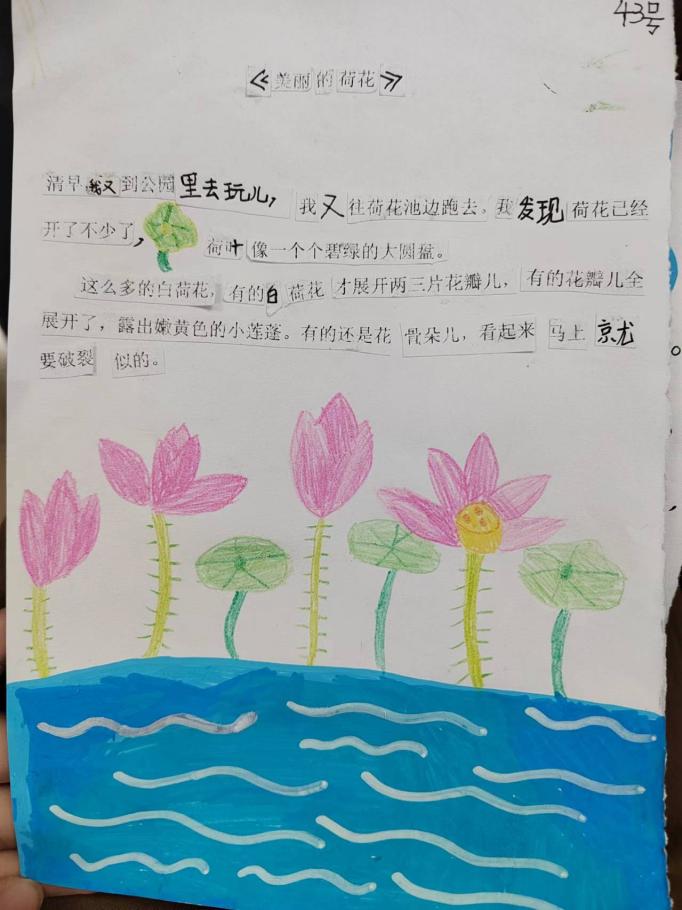 43号
《美丽的荷花》
清早我又到公园里去玩儿，我又往荷花池边跑去。我发现荷花已经
开了不少了，荷叶像一个个碧绿的大圆盘。
这么多的白荷花，有的白荷花才展开两三片花瓣儿，有的花瓣儿全
展开了，露出嫩黄色的小莲蓬。有的还是花骨朵儿，看起来马上京尤
要破裂似的。